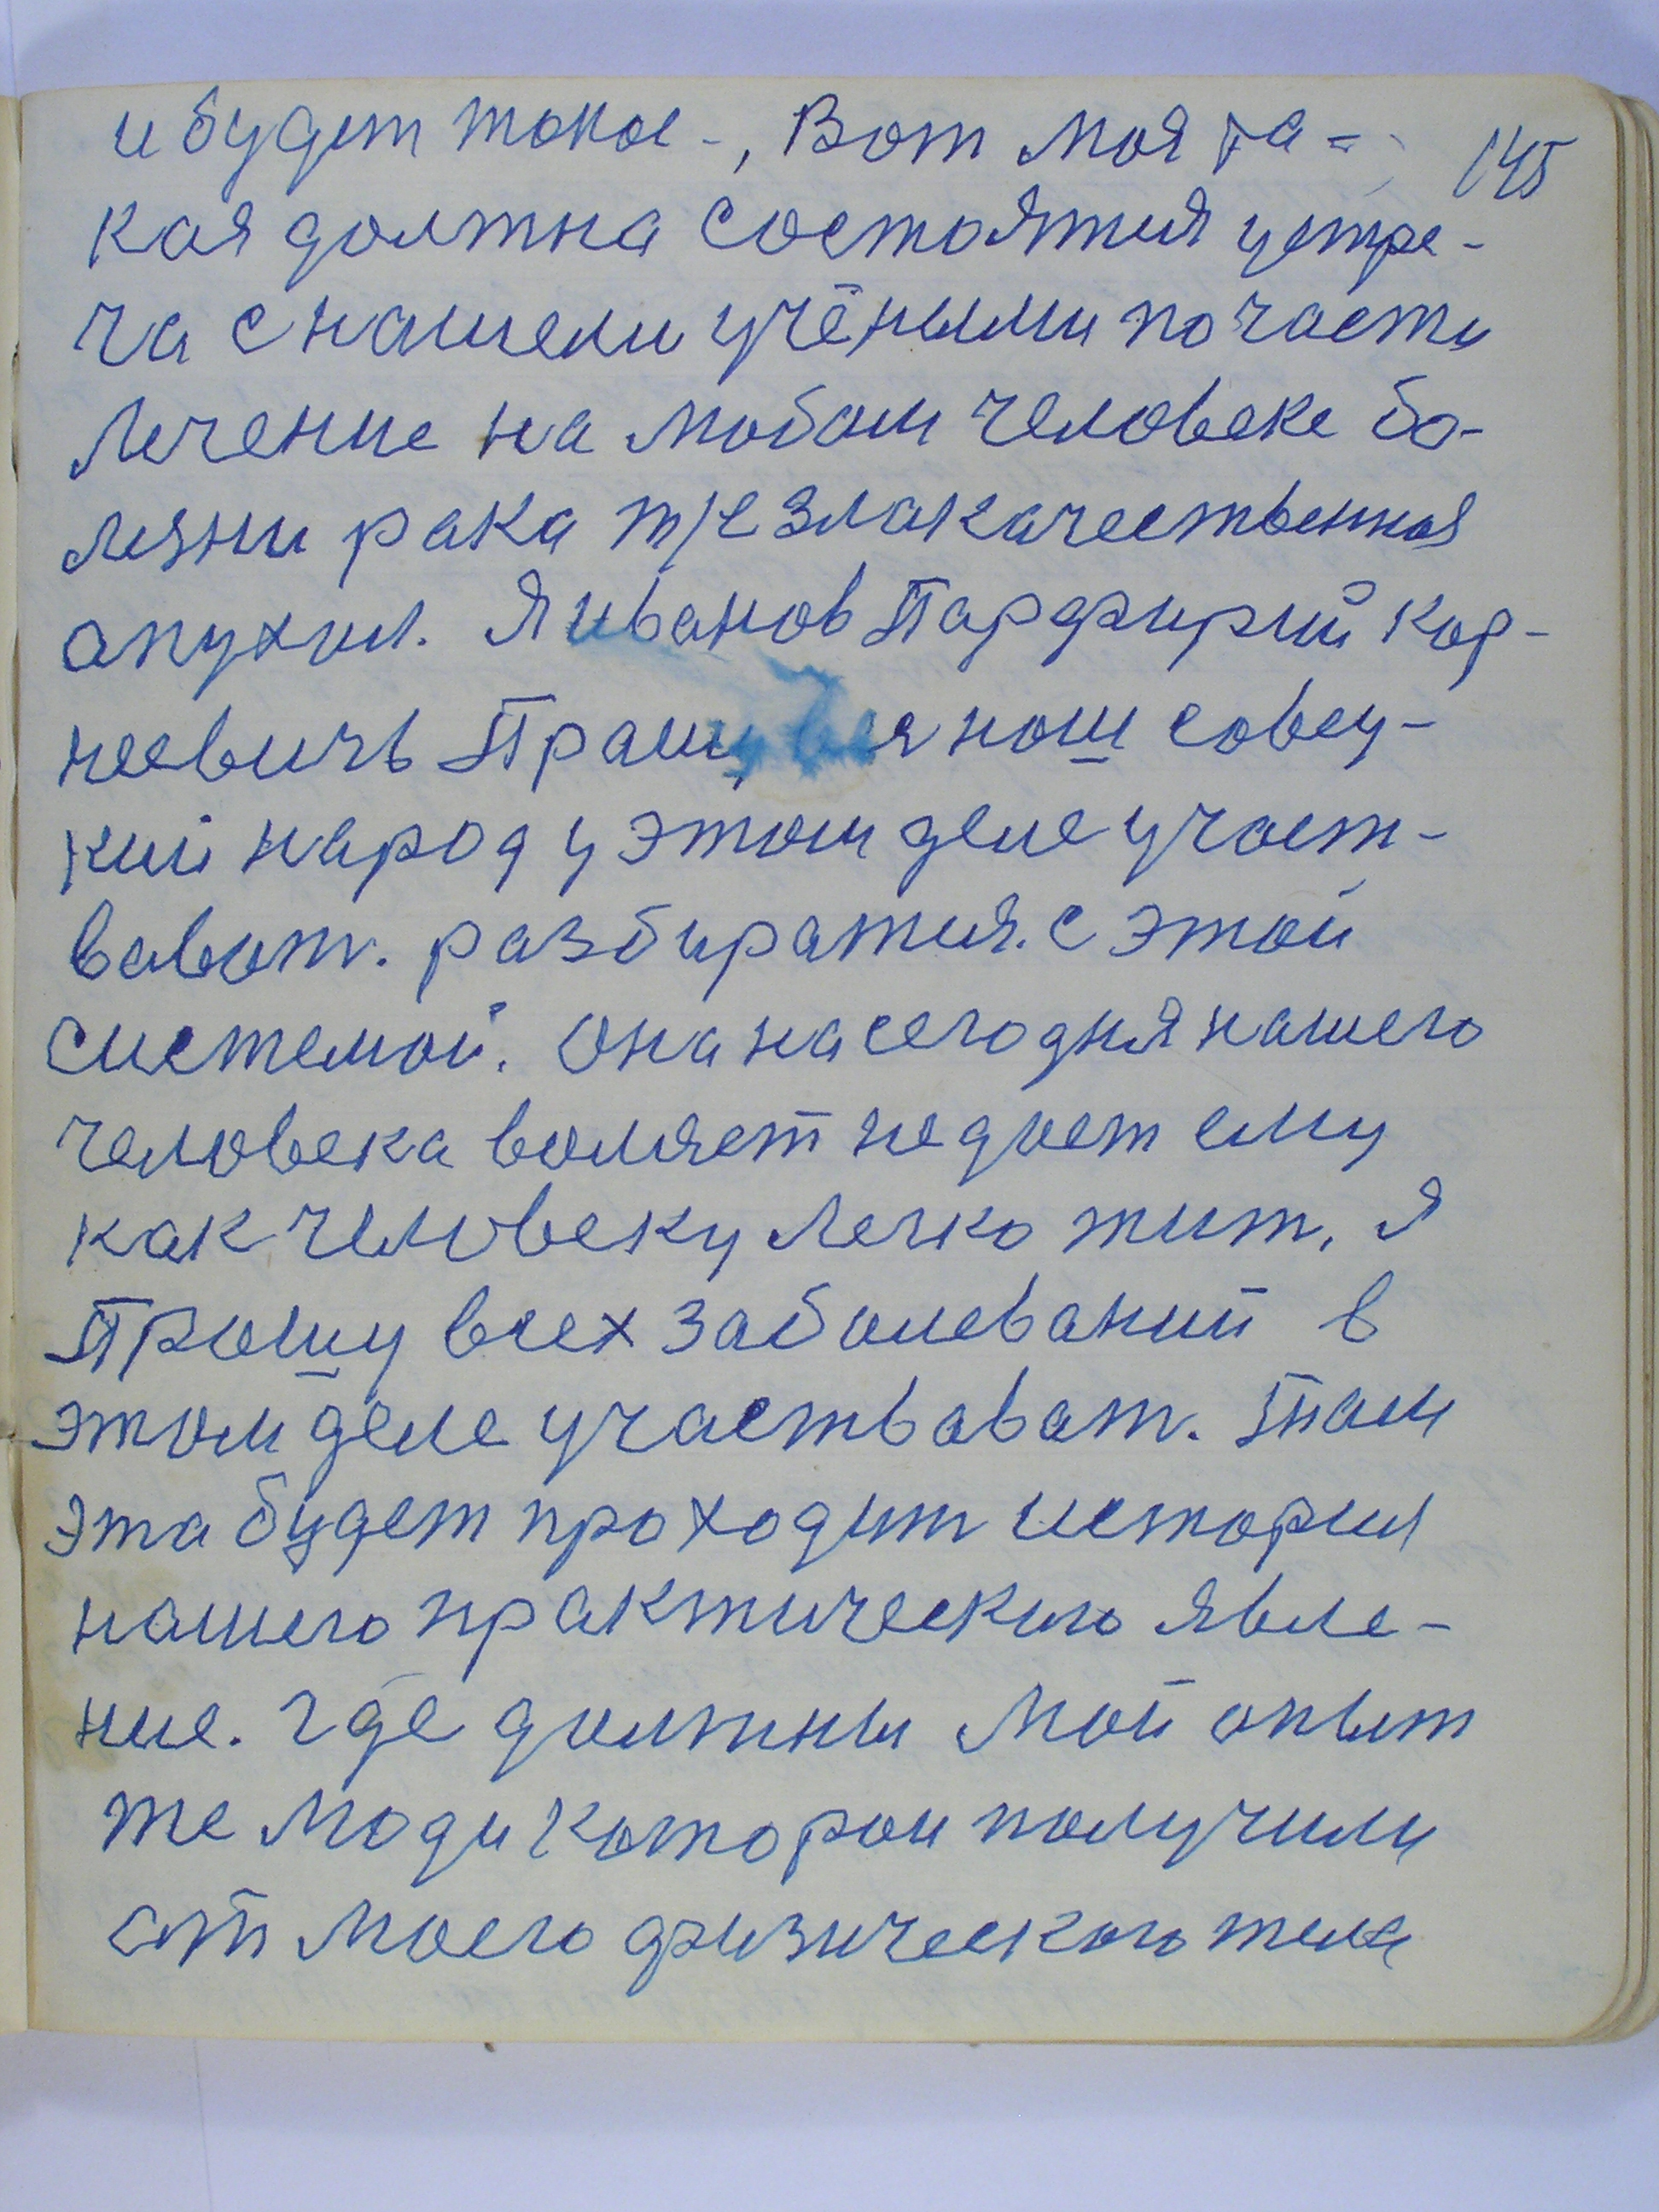 и будет токое -, Вот моя та= 145
кая должна состоятия устре-
ча с нашеми учёными по части
лечение на любом человеке бо-
лезни рака т/е злакачественная
опухол. Я иванов Парфирий Кор-
неевичь Прашу вся наш совец-
кий народ у этом деле участ-
вават. разбиратия. с этой
системой. Она на сегодня нашего
человека воляет не дает ему
как человеку легко жит, я
Прошу всех заболеваний в
этом деле участвават. Там
эта будет проходит история
нашего практического явле-
ние. где должны мой опыт
те люди которои получили
от моего физического тела